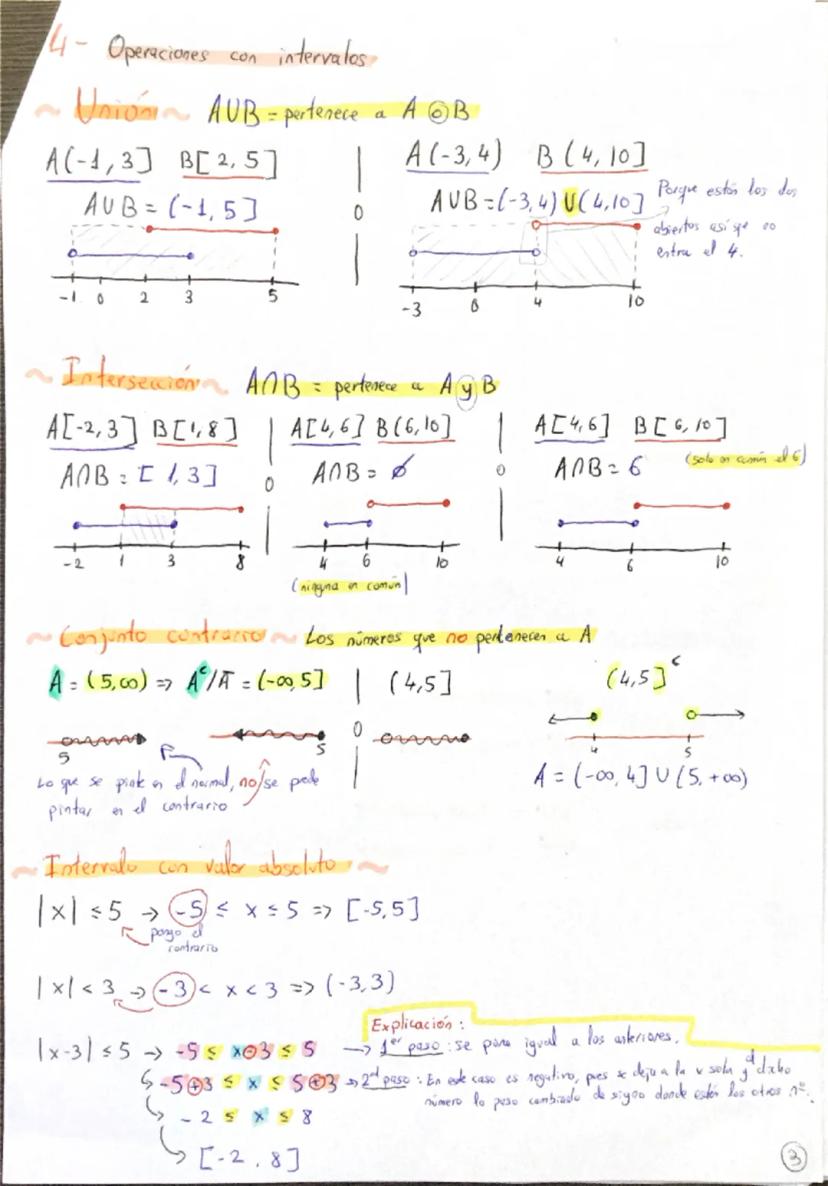 4- Operaciones con intervalos
~ Unión ~ AUB = pertenece a A o B
A(-1, 3] B[2, 5]
AUB = (-1, 5]
-1 0 2 3 5
o
A(-3,4) B(4,10]
AUB=(-3,4) U(4,10]
Porque están los dos
abiertos así que no
entra el 4.
-3 0 4 10
~ Intersección ~ A∩B = pertenece a A y B
A[-2,3] B[1,8]
A∩B = [1,3]
-2 1 3 8
o
A[4,6] B(6,10]
A∩B = ∅
4 6 10
(ninguna en común)
o
A[4,6] B[6,10]
A∩B = 6 (solo en común el 6)
4 6 10
~ Conjunto contrario ~ Los números que no pertenecen a A
A = (5,∞) => Aᶜ/Ā = (-∞,5]
5 5
Lo que se pinte en el normal, no se puede
pintar en el contrario
o
(4,5] (4,5]ᶜ
4 5
A = (-∞, 4] U (5, +∞)
~ Intervalo con valor absoluto ~
|x| ≤ 5 → -5 ≤ x ≤ 5 => [-5,5]
pongo el
contrario
|x| < 3 → -3 < x < 3 => (-3,3)
Explicación:
|x-3| ≤ 5 → -5 ≤ x-3 ≤ 5 → 1er paso: se pone igual a los anteriores.
-5+3 ≤ x ≤ 5+3 → 2º paso: En este caso es negativo, pues se deja a la x sola y
número lo paso cambiado de signo donde están los otros nº.
-2 ≤ x ≤ 8
[-2, 8]
3